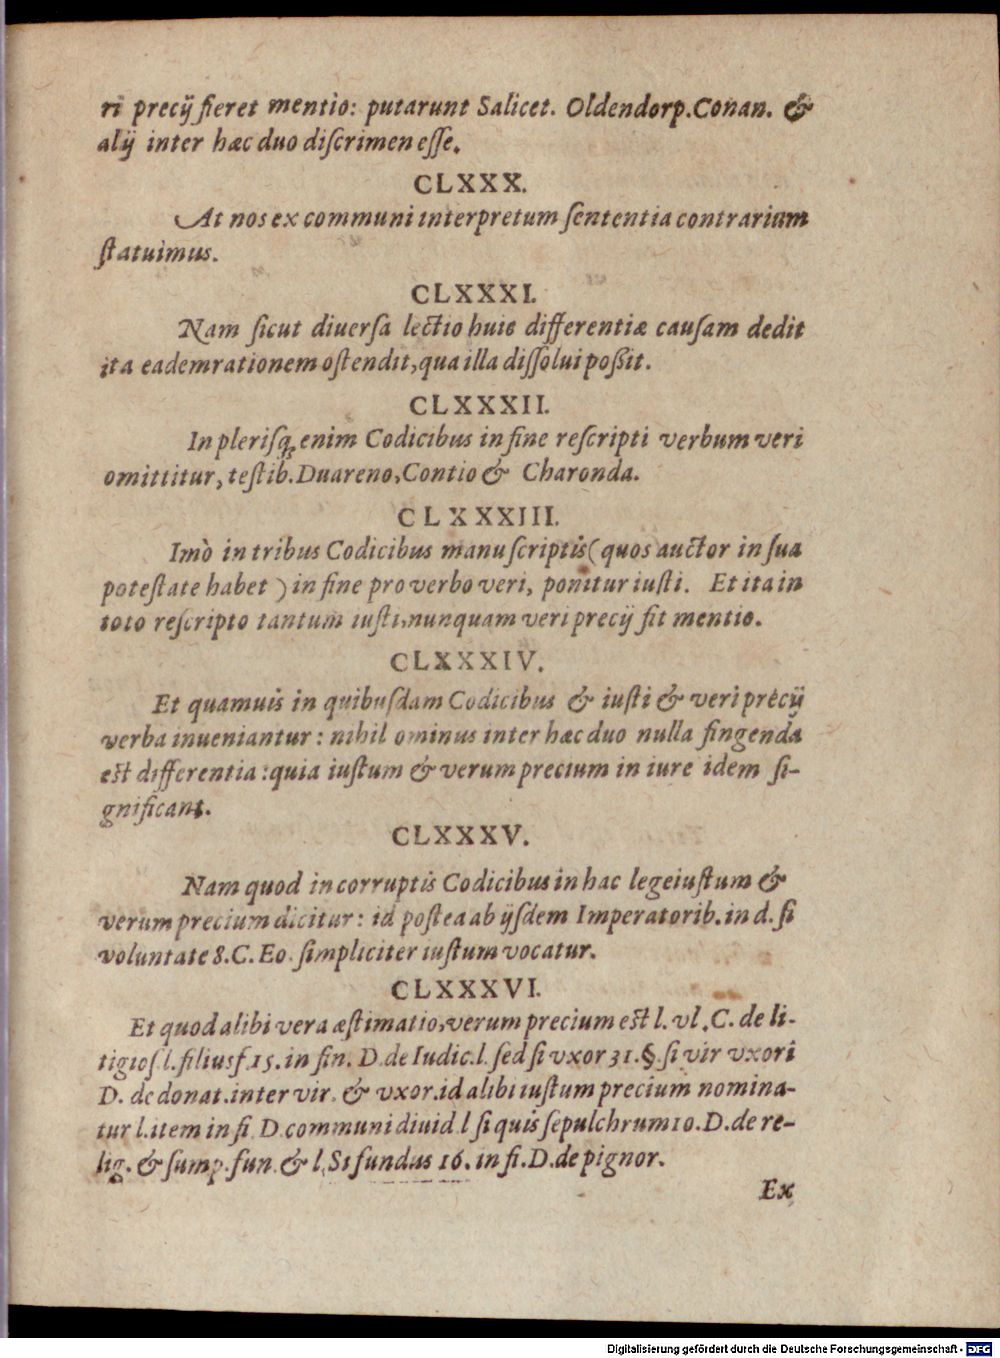 ri precij fieret mentio: putarunt Salicet. Oldendorp. Conan. &
alij inter hæc duo diſcrimen eſſe.
CLXXX.
At nos ex communi interpretum ſententia contrarium
ſtatuimus.
CLXXXI.
Nam ſicut diuerſa lectio huic differentiæ cauſam dedit
ita eadem rationem oſtendit, qua illa diſſolui poßit.
CLXXXII.
In pleriſq; enim Codicibus in fine reſcripti verbum veri
omittitur, teſtib. Duareno, Contio & Charonda.
CLXXXIII.
Imò in tribus Codicibus manuſcriptis (quos auctor in ſua
poteſtate habet) in fine pro verbo veri, ponitur iuſti. Et ita in
toto reſcripto tantum iuſti, nunquam veri precij fit mentio.
CLXXXIV.
Et quamuis in quibuſdam Codicibus & iuſti & veri precij
verba inueniantur: nihil ominus inter hæc duo nulla fingenda
est differentia: quia iuſtum & verum precium in iure idem ſi-
gnificant.
CLXXXV.
Nam quod in corruptis Codicibus in hac lege iuſtum &
verum precium dicitur: id poſtea ab ijſdem Imperatorib. in d. ſi
voluntate 8. C. Eo. ſimpliciter iuſtum vocatur.
CLXXXVI.
Et quod alibi vera æſtimatio, verum precium est l. vl. C. de li-
tigioſ. l. filiusf. 15. in fin. D. de Iudic. l. ſed ſi vxor 31. §. ſi vir vxori
D. de donat. inter vir. & vxor. id alibi iuſtum precium nomina-
tur l. item in fi. D. communi diuid. l ſi quis ſepulchrum 10. D. de re-
lig. & ſump. fun. & l. Si fundus 16. in fi. D. de pignor.
Ex
Digitalisierung gefördert durch die Deutsche Forschungsgemeinschaft - DFG